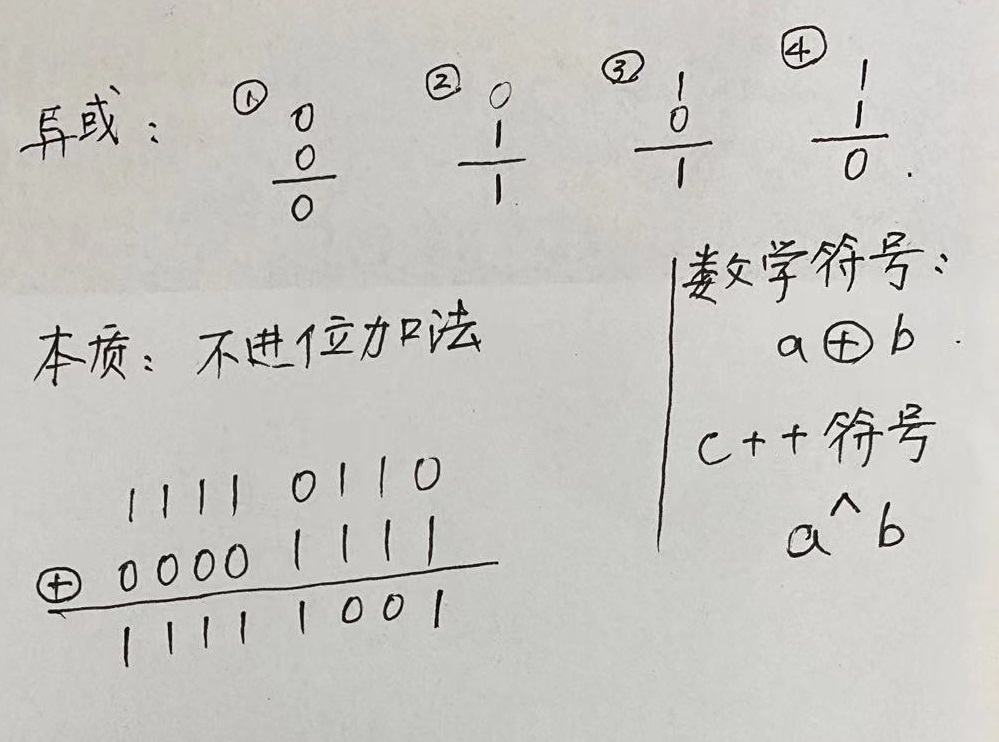 异或： ① ② ③ ④
0 0 1 1
0 1 0 1
0 1 1 0 .
本质：不进位加法
1111 0110
⊕ 0000 1111
1111 1001
数学符号：
a ⊕ b .
c++符号
a ^ b